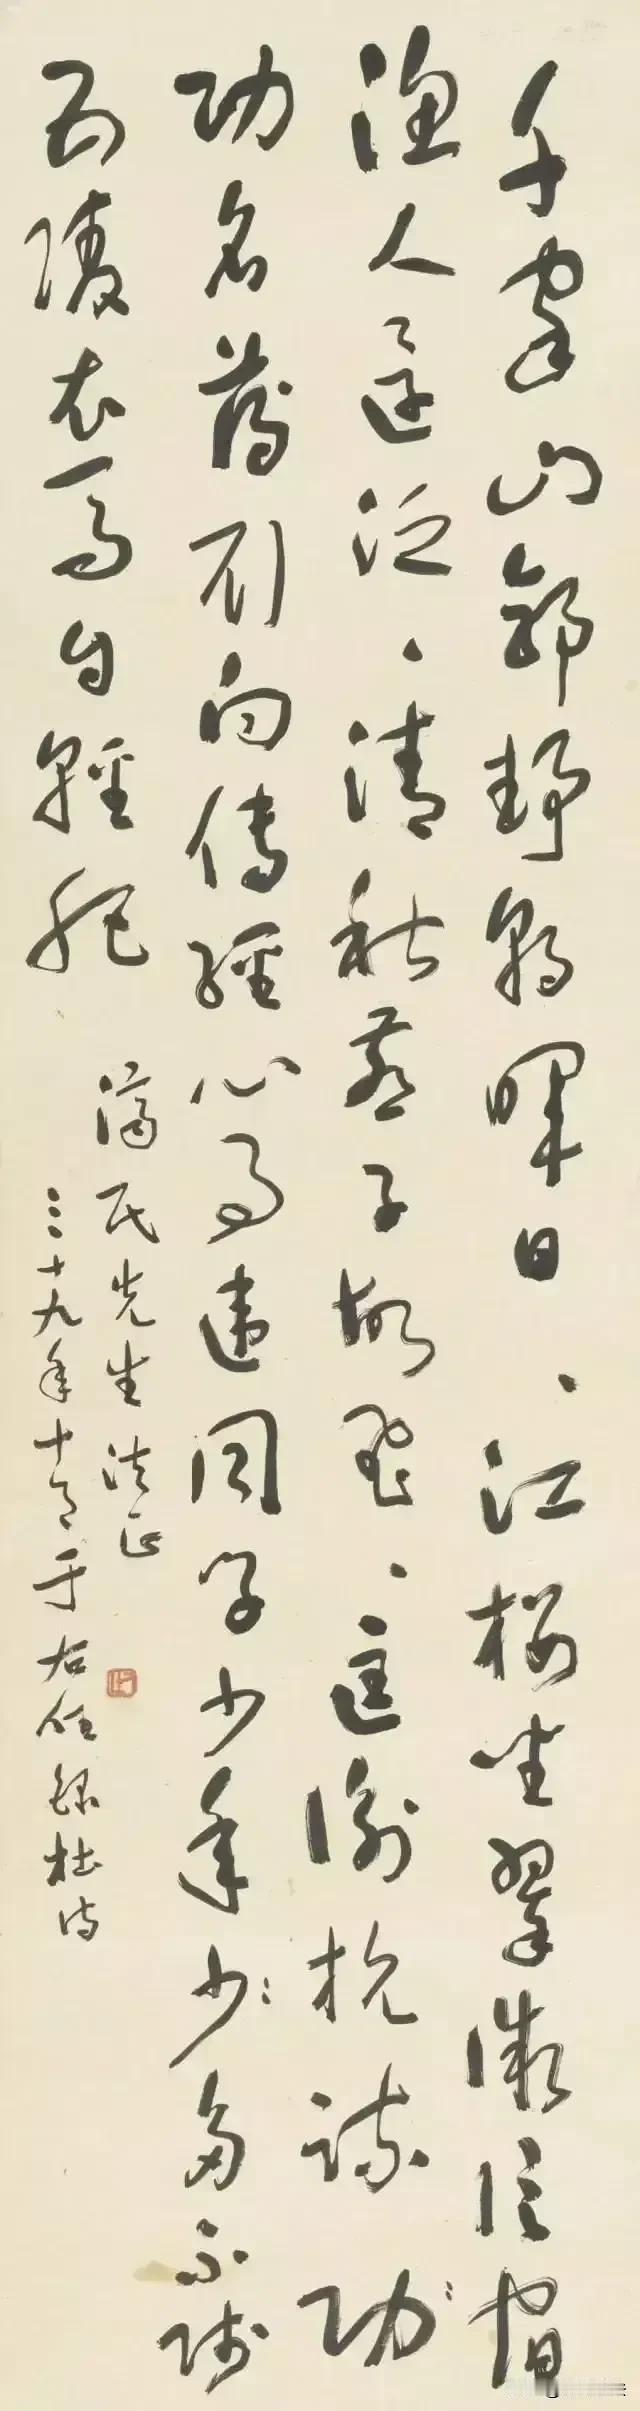 千家山郭靜朝暉日、江樓坐翠微信宿
漁人還泛、清秋燕子故飛、匡衡抗疏功
功名薄劉向傳經心事違同學少年少多不賤
五陵衣馬自輕肥
濟民先生法正
三十九年十月于右任錄杜詩